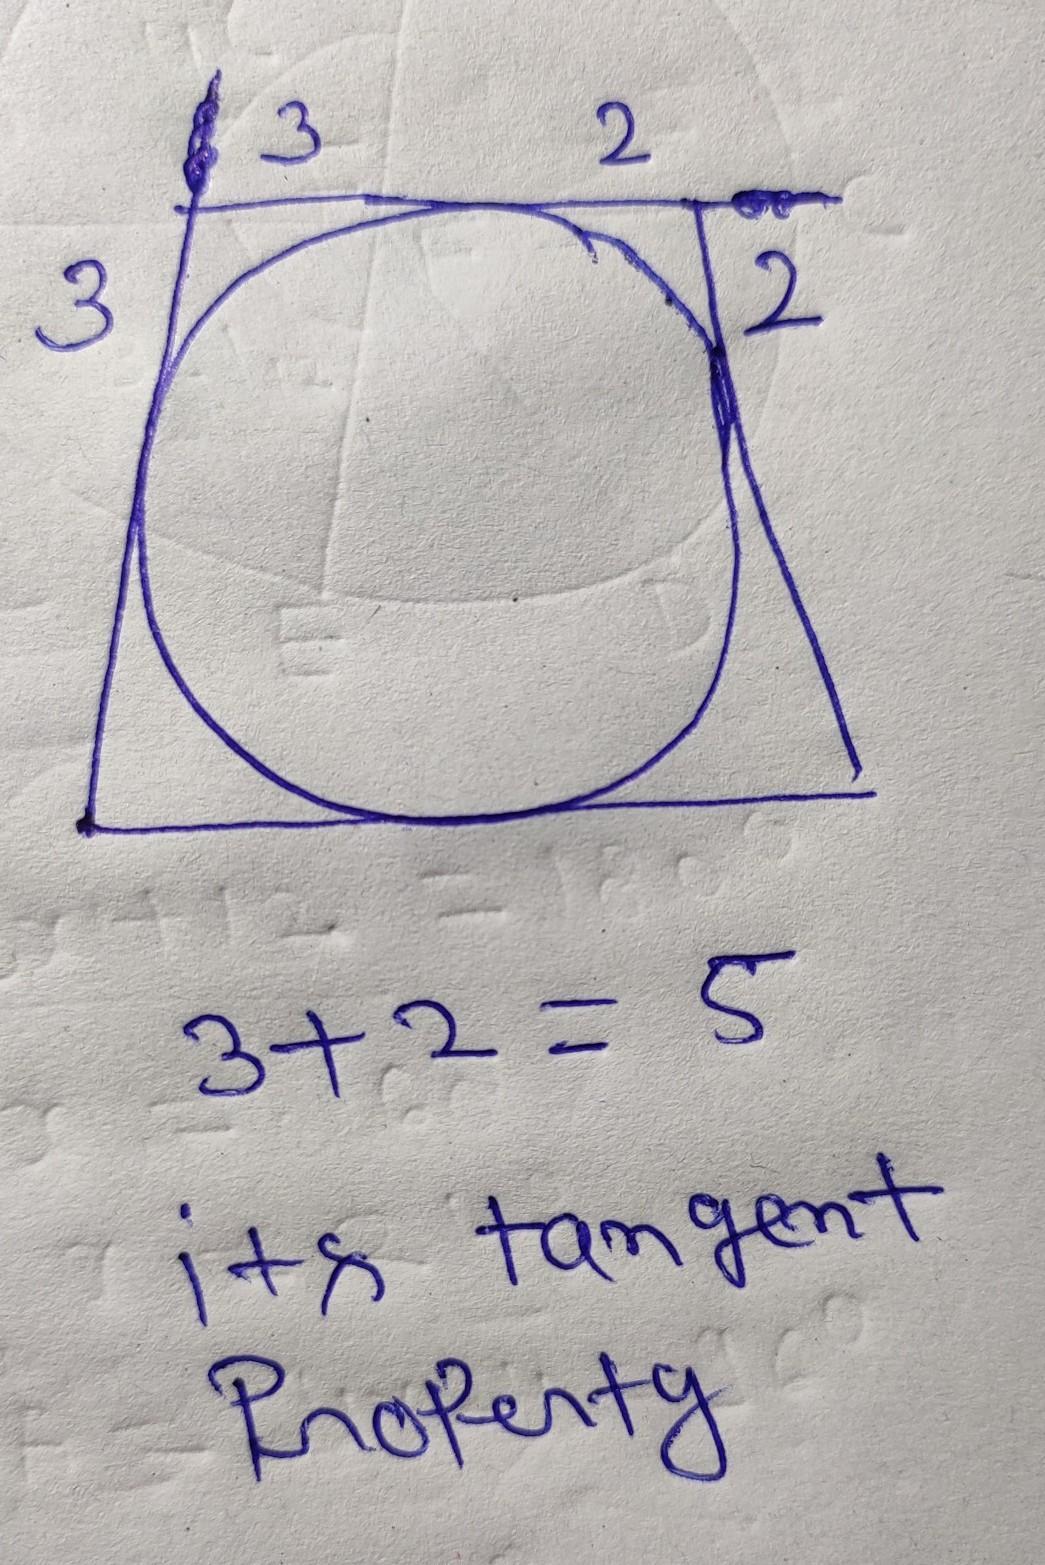 3 2
3 2
3+2 = 5
its tangent
Property